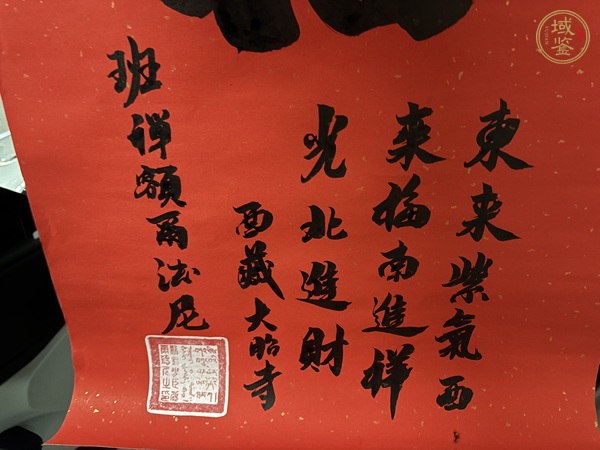 東来紫氣西
来福南進祥
光北進財
西藏大昭寺
班禅额爾法尼
域鉴